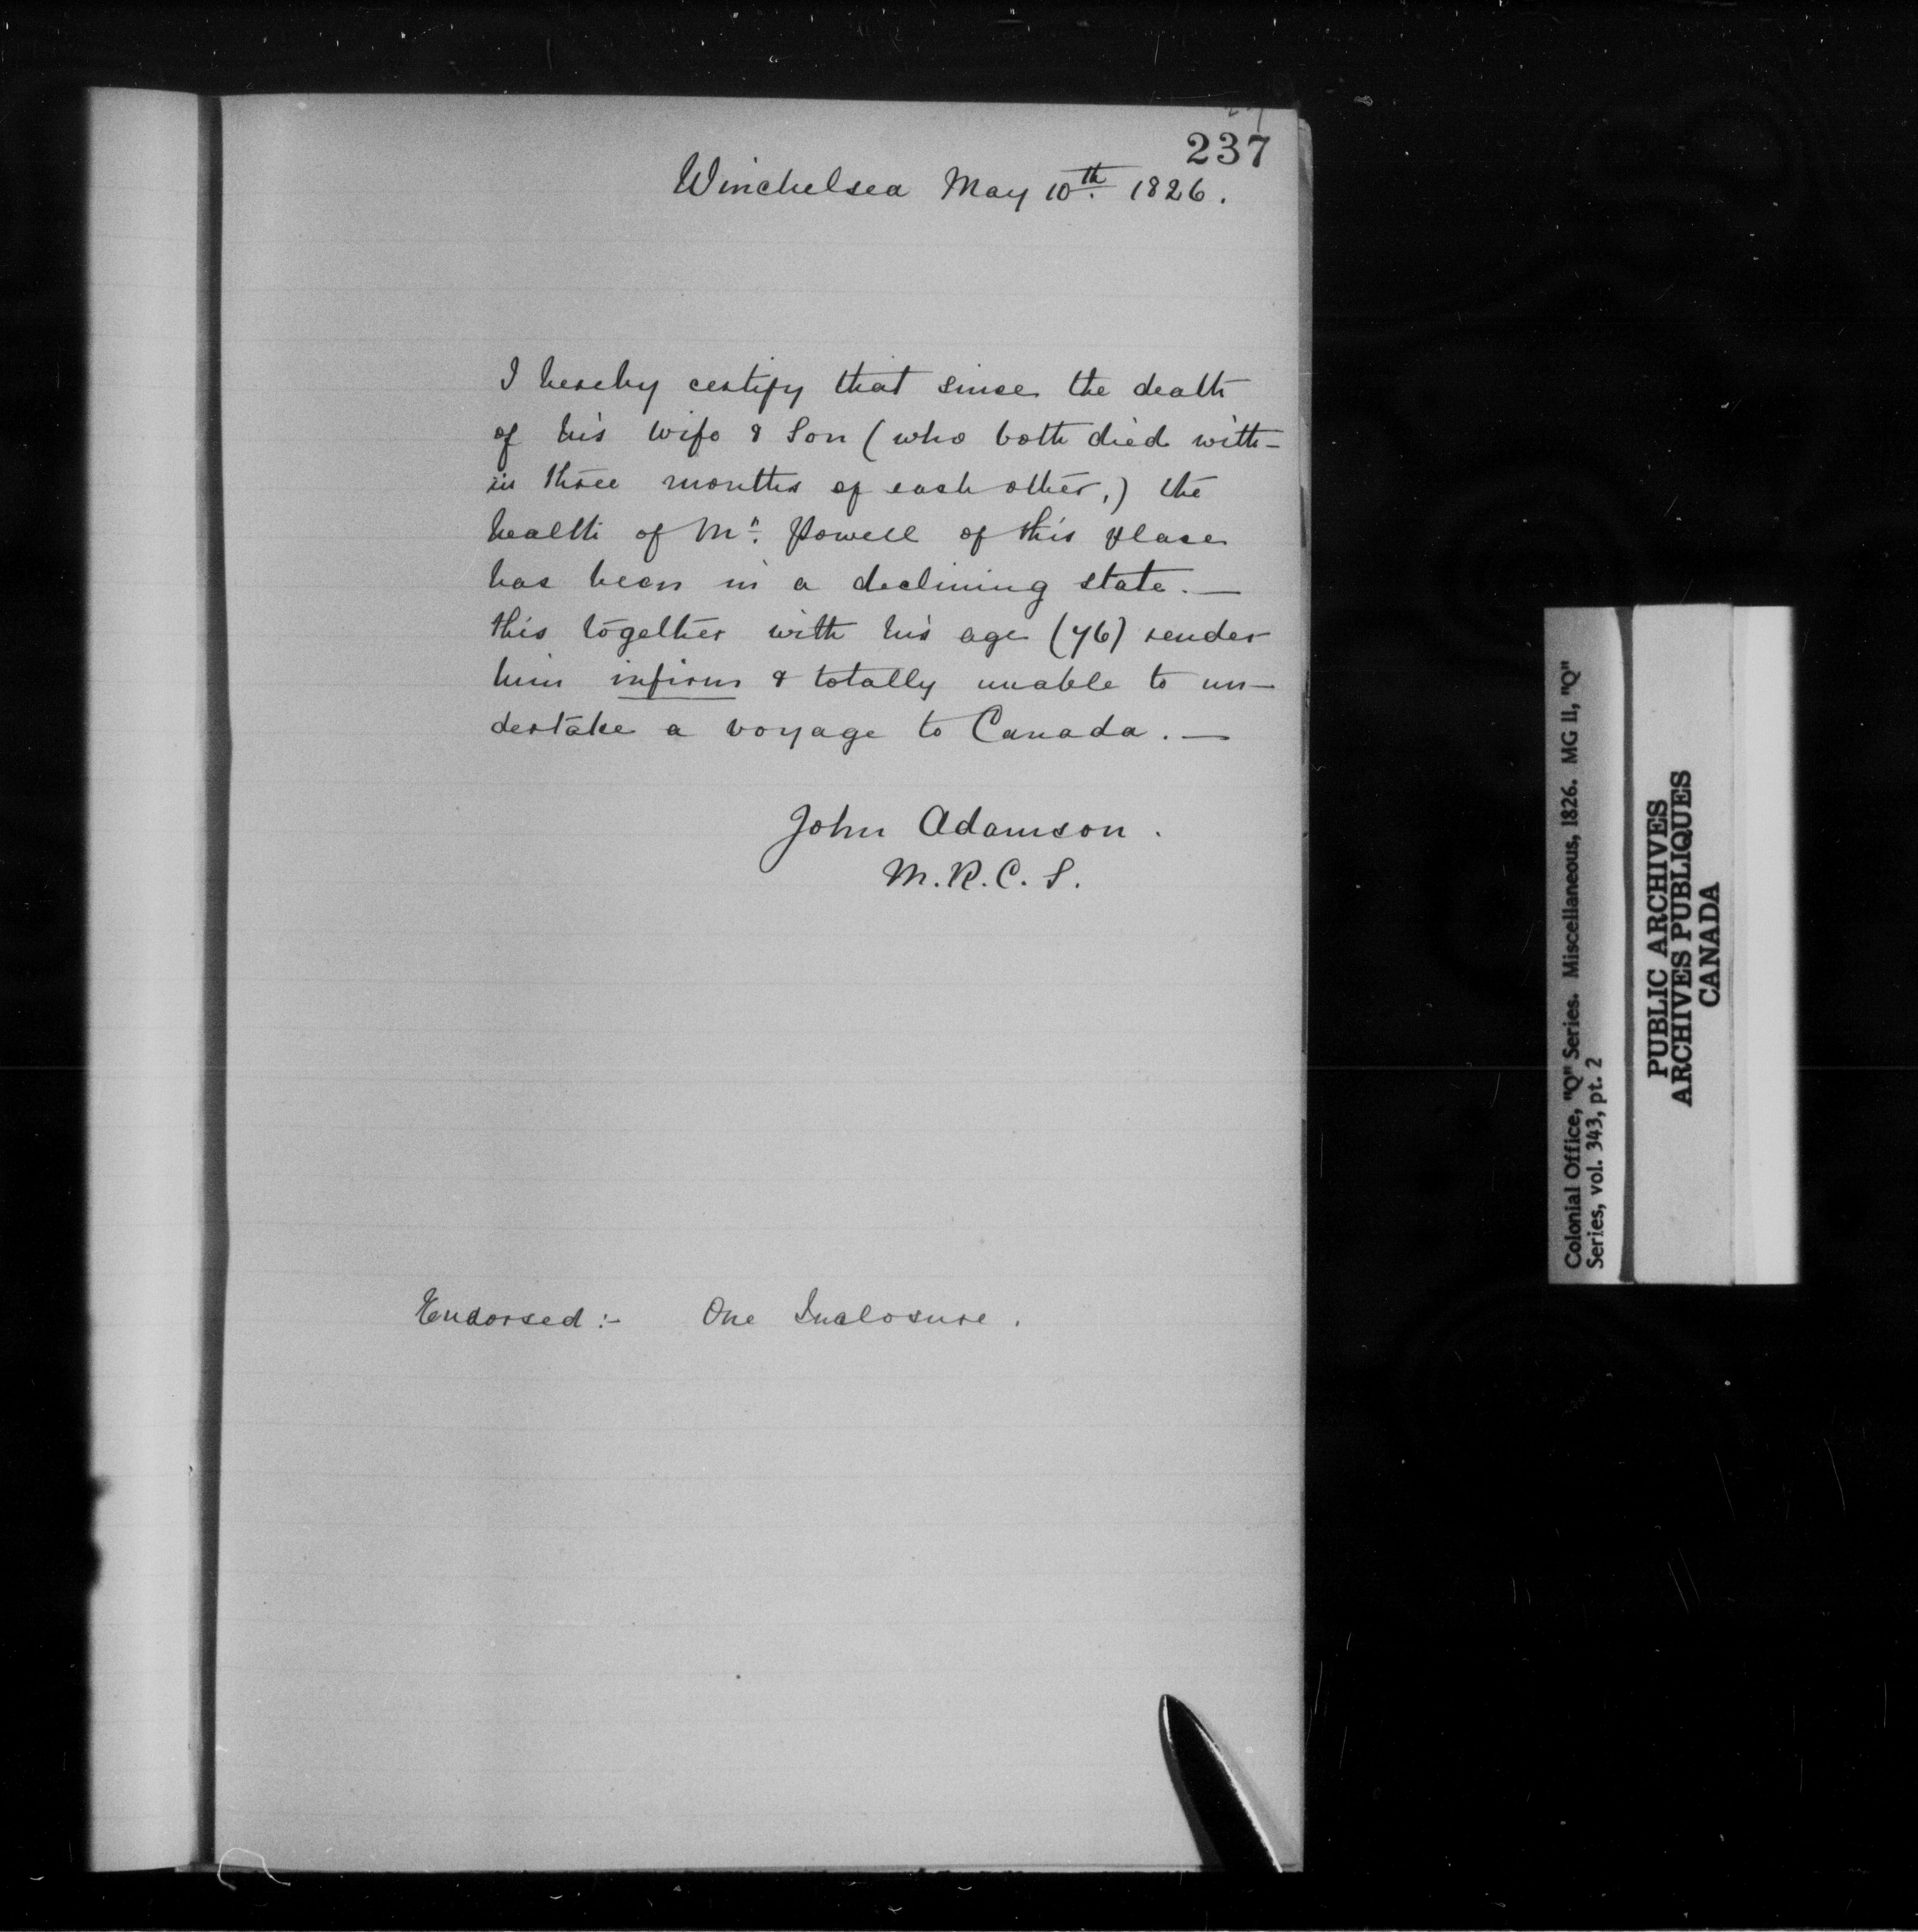 237
Winchelsea May 10th. 1826.
I hereby certify that since the death
of his wife & Son (who both died with-
in three months of each other,) the
health of Mr. Powell of this place
has been in a declining state.—
this together with his age (76) render
him infirm & totally unable to un-
dertake a voyage to Canada.—
John Adamson.
M.R.C.S.
Endorsed:- One Inclosure.
Colonial Office, "Q" Series. Miscellaneous, 1826. MG 11, "Q"
Series, vol. 343, pt. 2
PUBLIC ARCHIVES
ARCHIVES PUBLIQUES
CANADA